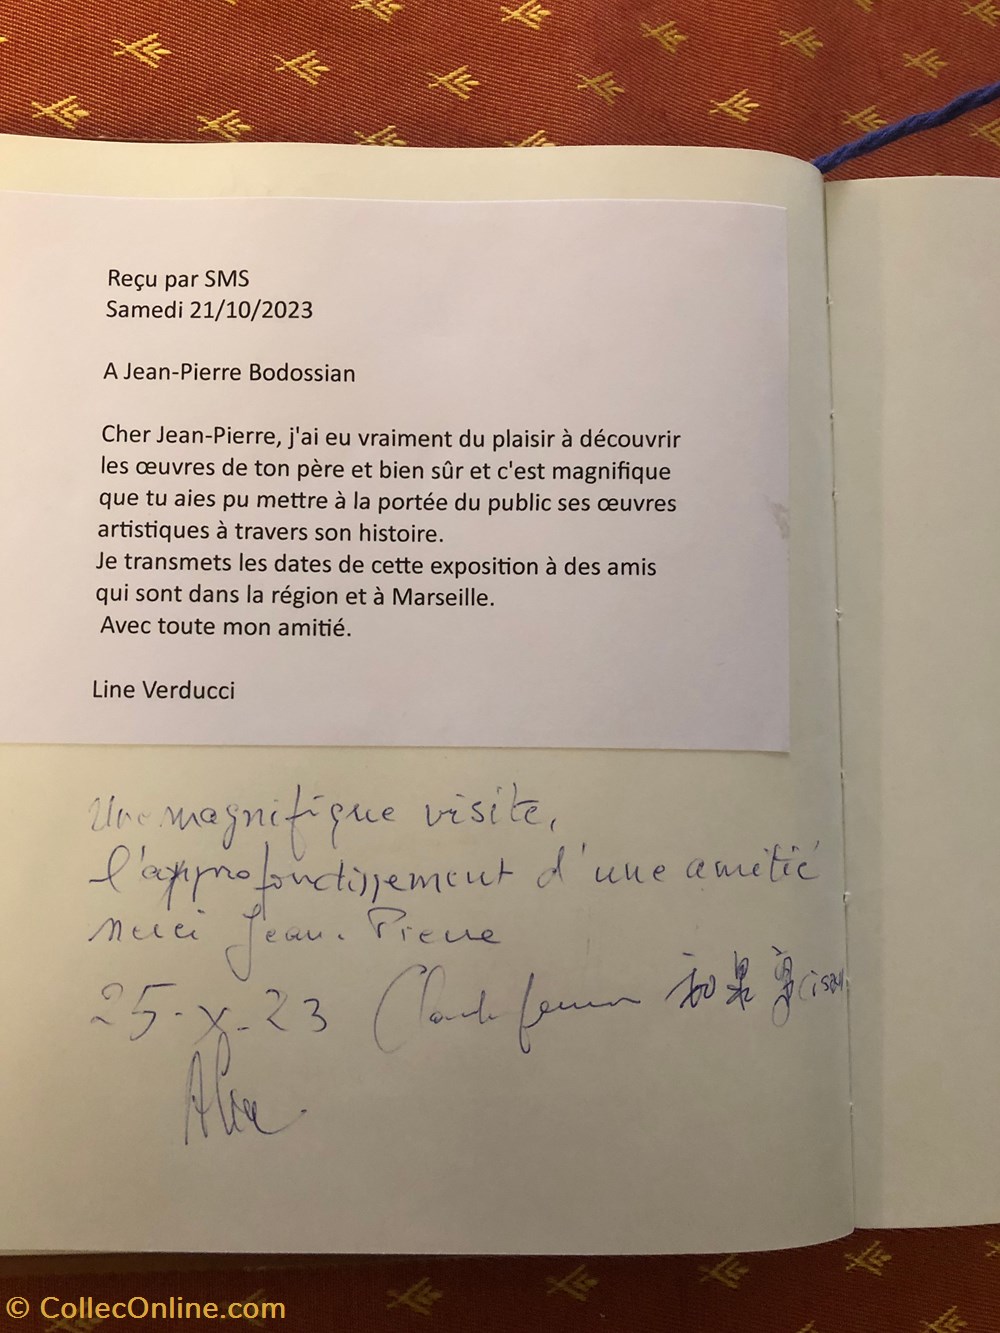 Reçu par SMS
Samedi 21/10/2023
A Jean-Pierre Bodossian
Cher Jean-Pierre, j'ai eu vraiment du plaisir à découvrir
les œuvres de ton père et bien sûr et c'est magnifique
que tu aies pu mettre à la portée du public ses œuvres
artistiques à travers son histoire.
Je transmets les dates de cette exposition à des amis
qui sont dans la région et à Marseille.
Avec toute mon amitié.
Line Verducci
Une magnifique visite,
l'approfondissement d'une amitié
merci Jean-Pierre
25-X-23 Claude
© CollecOnline.com